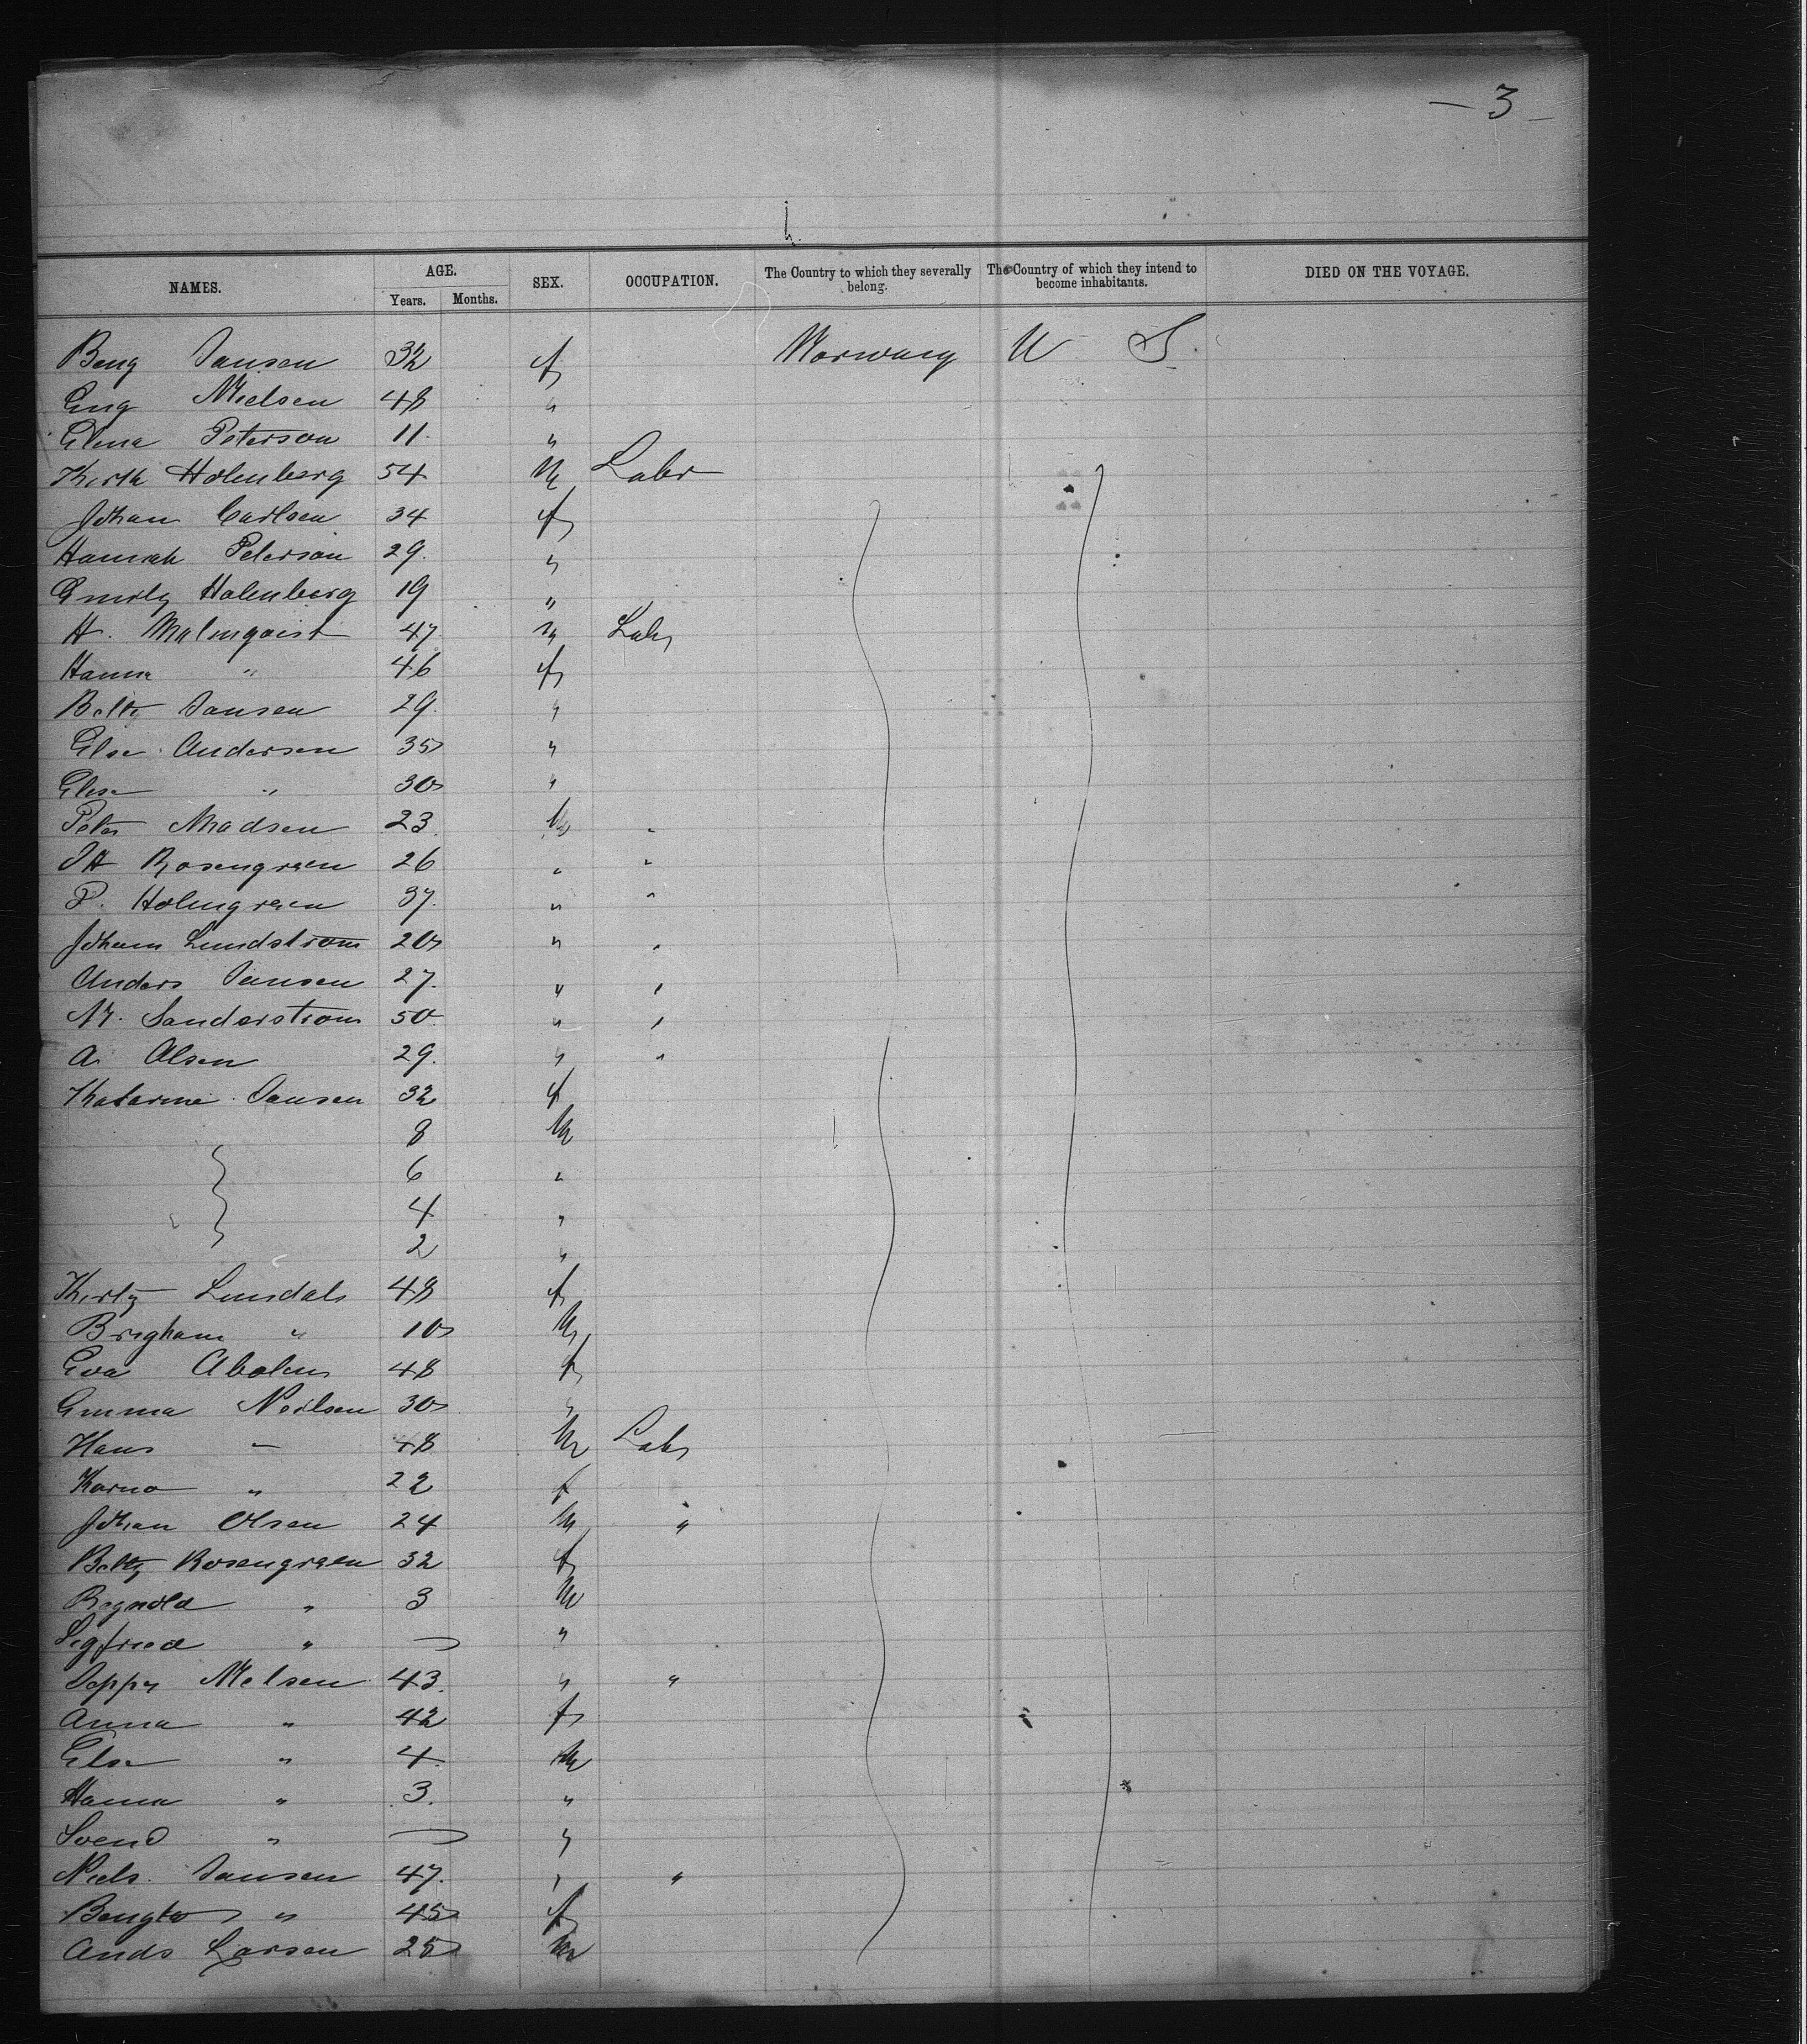 — 3 —
NAMES. AGE. Years. Months. SEX. OCCUPATION. The Country to which they severally belong. The Country of which they intend to become inhabitants. DIED ON THE VOYAGE.
Beng Jansen 32 f Norway U S.
Eng Nielsen 48 "
Elena Peterson 11. "
Holenberg 54 M Labr
Johan Carlsen 34 f
Hannah Peterson 29. "
Emily Holenberg 19 "
H. Malmqvist 47 M Labr
Hanna " 46 f
Betty Jansen 29. "
Else Andersen 35 "
Elise " 30 "
Peter Madsen 23. M "
JH Rosengreen 26 " "
P. Holmgreen 37. " "
Johan Lundstrom 20 " "
Anders Jansen 27. " "
N. Sanderstrom 50 " "
A. Olsen 29. " "
Katarine Jansen 32 f
8 M
6 "
4 "
2 "
Lundals 48 f
Brigham " 10 M
Eva 48 f
Emma Neilsen 30 "
Hans " 48 M Labr
Karna " 22 f
Johan Olsen 24 M "
Betty Rosengreen 32 f
Regnold " 3 M
Sigfried " — "
Jeppy Nielsen 43. " "
Anna " 42 f
Else " 4 M
Hanna " 3. "
Svend " — "
Niels. Jansen 47. " "
Bengta " 45 f
Ands Larsen 25 M